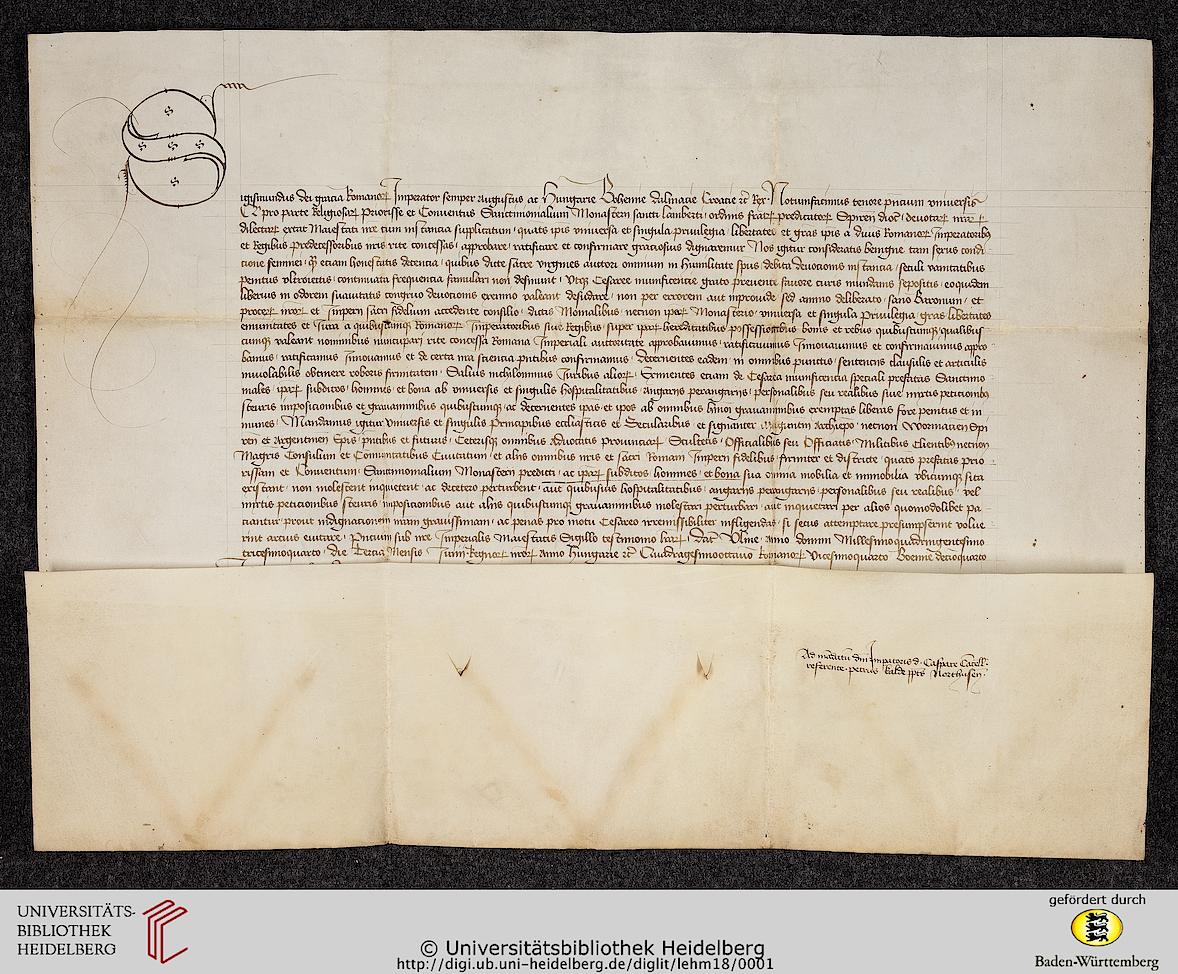 Sigismundus dei gracia Romanor Imperator semper Augustus ac Hungarie Bohemie Dalmacie Croacie rc Rex Notumfacimus tenore pncium vniuersis
pro parte Religiosar Priorisse et Conuentus Sanctimonialium Monasterii sancti Lamberti ordinis fratr predicator Spiren dioc deuotar nrar
dilectar extitit Maiestati nre cum instancia supplicatum quats ipis vniuersa et singula priuilegia libertates et gras ipis a diuis Romanor Imperatoribus
et Regibus predecessoribus nris rite concessas approbare ratificare et confirmare graciosius dignaremur Nos igitur consideratis benigne tam sexus condi
cione feminei etiam honestatis decencia quibus dicte sacre virgines auctori omnium in humilitate spus debita deuocionis instancia seculi vanitatibus
penitus vltroiectis continuata frequencia famulari non desinunt Vtq Cesaree munificencie grato preuente fauore curis mundanis sepositis eoquidem
liberius in odorem suauitatis congruo deuocionis valeant desudare non per errorem aut improuide sed animo deliberato sano Baronum et
procer nror et Imperii sacri fidelium accedente consilio dictis Monialibus necnon ipar Monasterio vniuersa et singula priuilegia gras libertates
emunitates et Iura a quibuscumq Romanor Imperatoribus siue Regibus super ipar hereditatibus possessionibus bonis et rebus quibuscumq qualibus
cumq valeant nominibus nuncupari rite concessa Romana Imperiali auctoritate approbauimus ratificauimus Innouauimus et confirmauimus appro
bamus ratificamus Innouamus et de certa nra sciencia pntibus confirmamus Decernentes eadem in omnibus punctis sentenciis clausulis et articulis
inuiolabilis obtinere roboris firmitatem Saluis nichilominus Iuribus alior Eximentes etiam de Cesarea munificentia speciali prefatas Sanctimo
niales ipar subditos homines et bona ab vniuersis et singulis hospitalitatibus angariis perangariis personalibus seu realibus siue mixtis peticionibus
steuris imposicionibus et grauaminibus quibuscumq ac decernentes ipas et ipos ab omnibus hmoi grauaminibus exemptas liberas fore penitus et in
munes Mandamus igitur vniuersis et singulis Principibus ecclesiasticis et Secularibus et signanter Maguntin Archiepo necnon Wormacien Spi
ren et Argentinen Epis pntibus et futuris Ceterisq omnibus Aduocatis prouinciar Scultetis Officialibus seu Officiatis Militibus Clientibus necnon
Magris Consulum et Comunitatibus Ciuitatum et aliis omnibus nris et sacri Romani Imperii fidelibus firmiter et districte quats prefatas prio
rissam et Conuentum Sanctimonialium Monasterii predicti ac ipar subditos homines et bona sua omnia mobilia et immobilia vbicumq sita
existant non molestent inquietent ac decetero perturbent aut quibusuis hospitalitatibus angariis perangariis personalibus seu realibus vel
mixtis peticionibus steuris imposicionibus aut aliis quibuscumq grauaminibus molestari perturbari aut inquietari per alios quomodolibet pa
ciantur prout indignacionem nram grauissimam ac penas pro motu Cesareo irremissibiliter infligendas si secus attemptare presumpserint volue
rint arcius euitare Pncium sub nre Imperialis Maiestatis Sigillo testimonio lrar Dat Vlme Anno domini Millesimoquadringentesimo
tricesimoquarto die Tercia Mensis Iunii Regnor nror Anno Hungarie rc Quadragesimooctauo Romanor Vicesimoquarto Boemie decioquarto
Ad madatu dni Impatoris d Caspare Cancell
referente petrus kalde ppts Northusen
UNIVERSITÄTS-
BIBLIOTHEK
HEIDELBERG
gefördert durch
Baden-Württemberg
© Universitätsbibliothek Heidelberg
http://digi.ub.uni-heidelberg.de/diglit/lehm18/0001